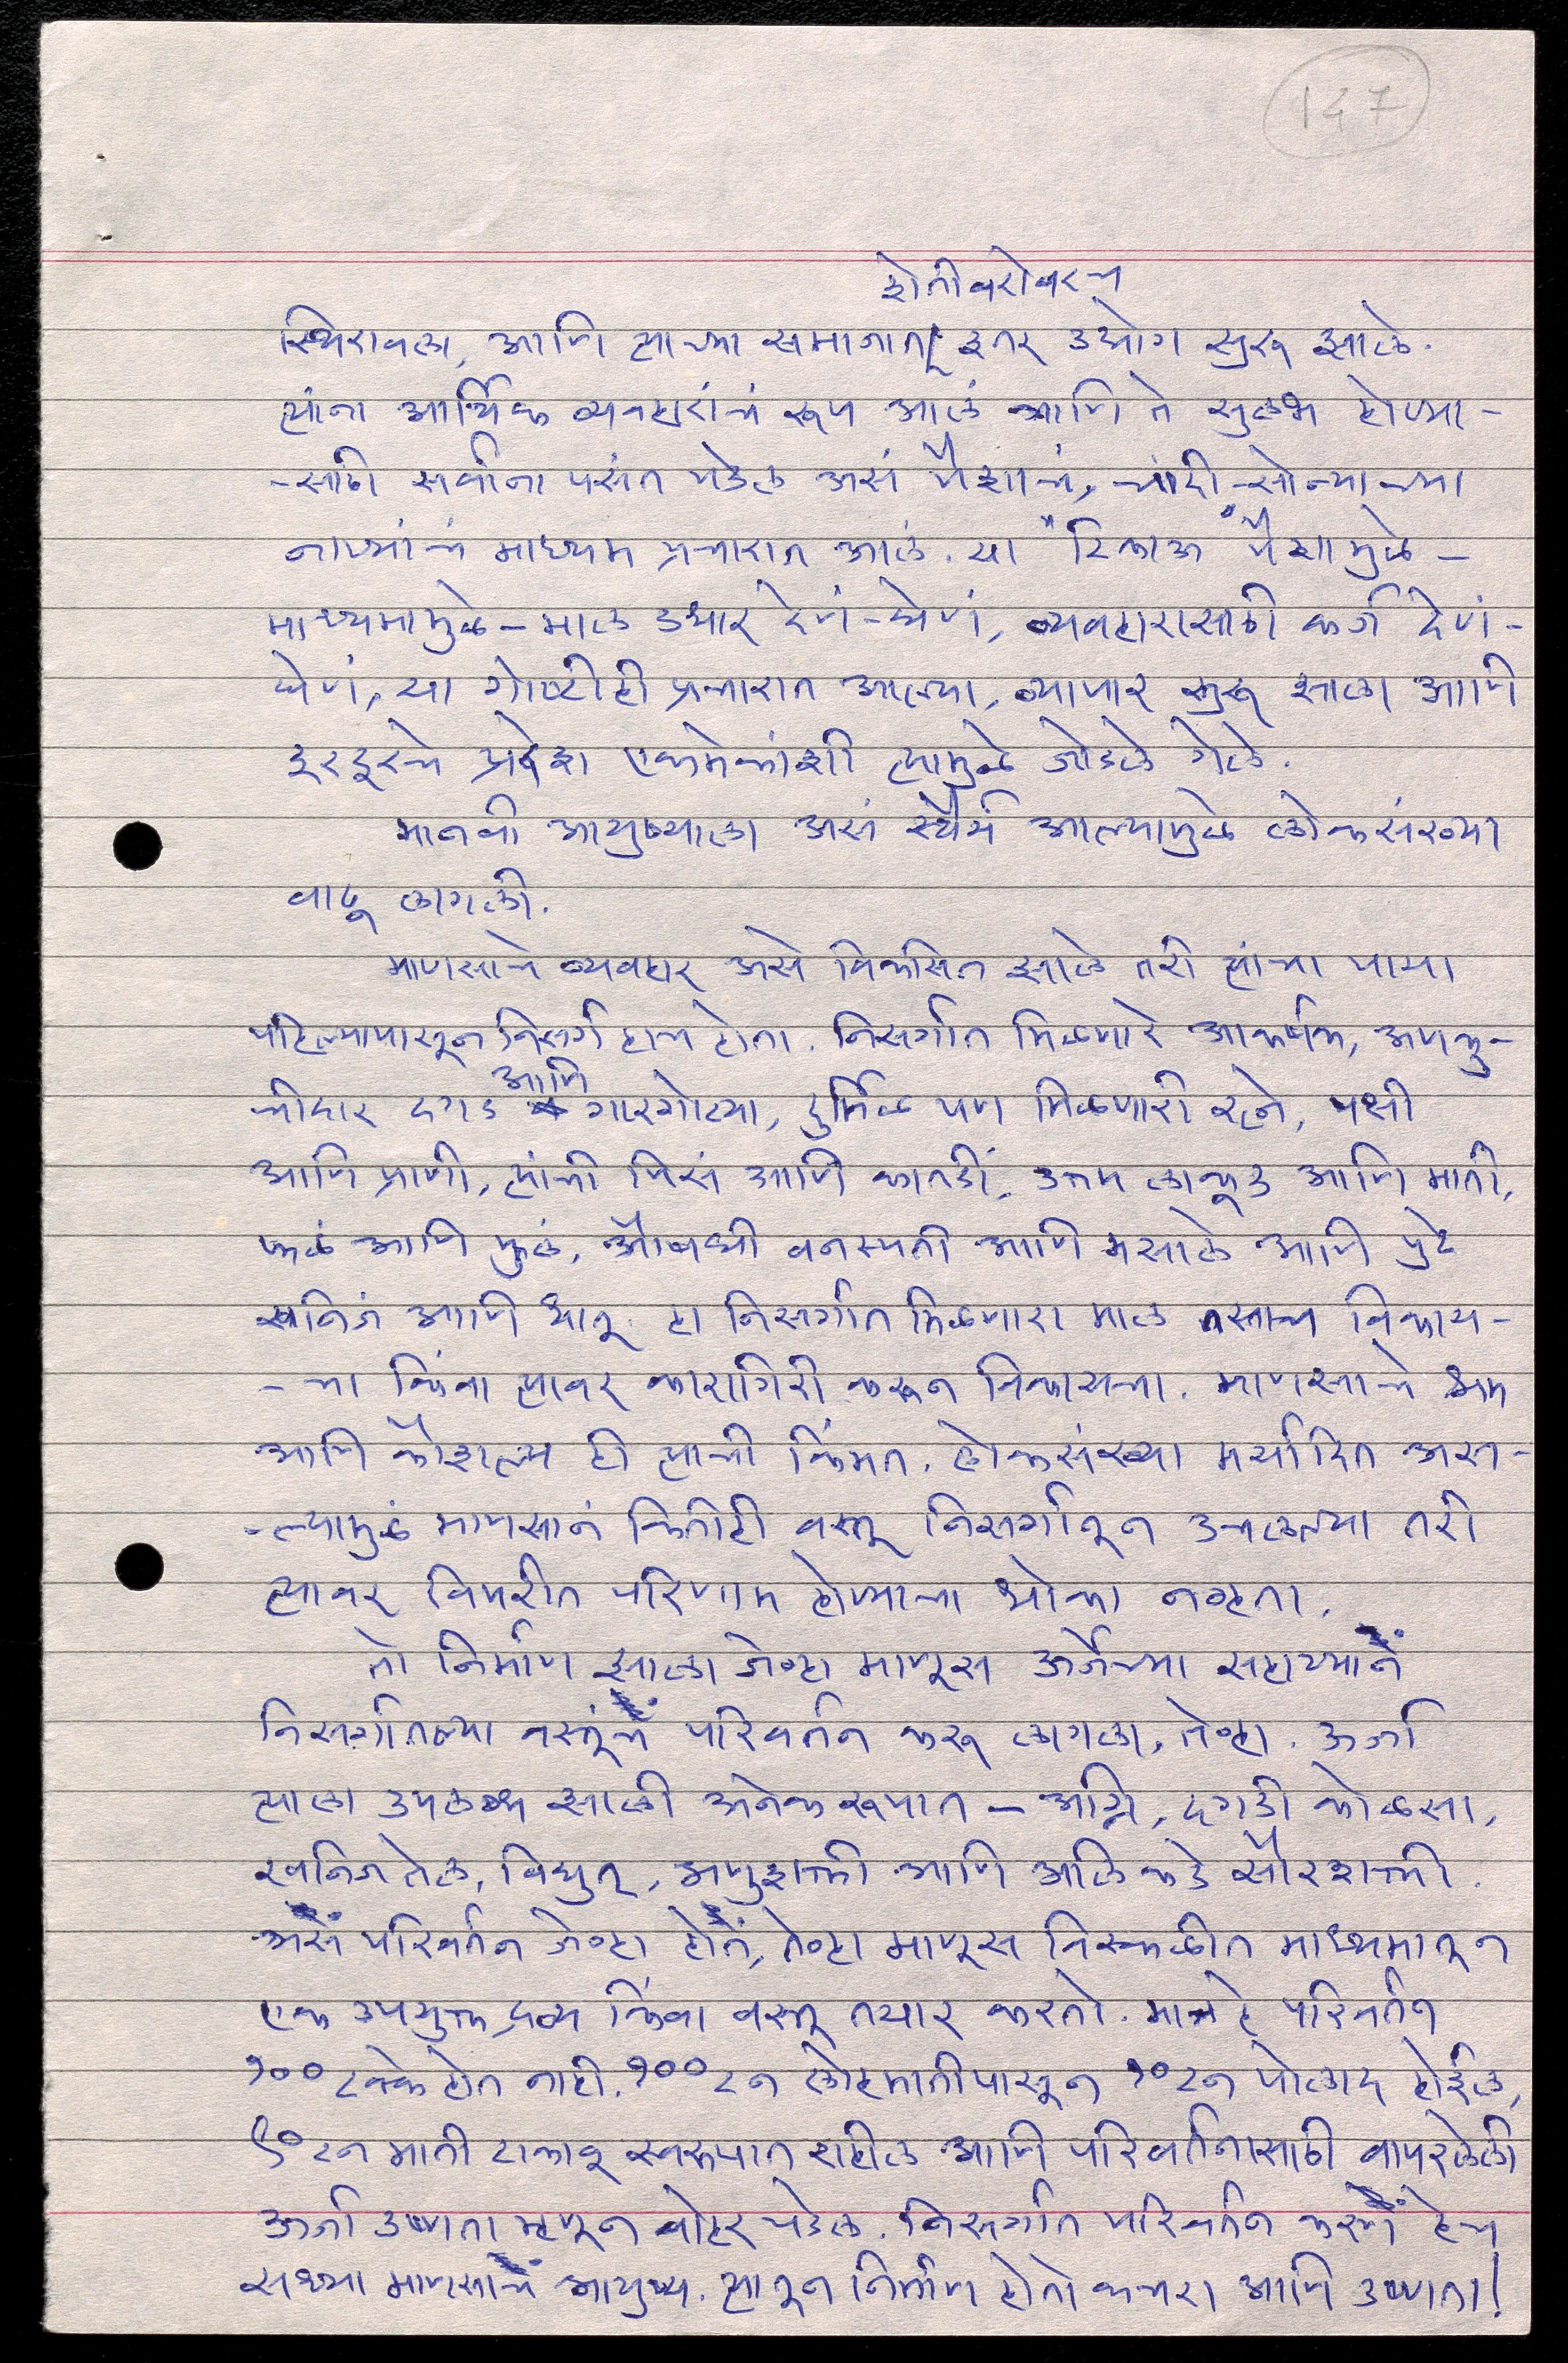 147
शेतीबरोबरच
स्थिरावला, आणि त्याच्या समाजात इतर उद्योग सुरू झाले.
त्यांना आर्थिक व्यवहारांचं रूप आलं आणि ते सुलभ होण्या-
-साठी सर्वांना पसंत पडेल असं पैशाचं, चांदी-सोन्याच्या
नाण्यांचं माध्यम प्रचारात आलं. या "टिकाऊ" पैशामुळे -
माध्यमामुळे - माल उधार देणं-घेणं, व्यवहारासाठी कर्ज देणं-
घेणं, या गोष्टीही प्रचारात आल्या, व्यापार सुरू झाला आणि
दूरदूरचे प्रदेश एकमेकांशी त्यामुळे जोडले गेले.
मानवी आयुष्याला असं स्थैर्य आल्यामुळे लोकसंख्या
वाढू लागली.
माणसाचे व्यवहार असे विकसित झाले तरी त्यांचा पाया
पहिल्यापासून निसर्ग हाच होता. निसर्गात मिळणारे आकर्षक, अणकु-
चीदार दगड आणि गारगोट्या, दुर्मिळ पण मिळणारी रत्ने, पक्षी
आणि प्राणी, त्यांची पिसं आणि कातडी, उत्तम लाकूड आणि माती,
फळं आणि फुलं, औषधी वनस्पती आणि मसाले आणि पुढे
खनिजं आणि धातू. हा निसर्गात मिळणारा माल तसाच विकाय-
-चा किंवा त्यावर कारागिरी करून विकायचा. माणसाचे श्रम
आणि कौशल्य ही त्याची किंमत. लोकसंख्या मर्यादित अस-
-ल्यामुळं माणसानं कितीही वस्तू निसर्गातून उचलल्या तरी
त्यावर विपरीत परिणाम होण्याचा धोका नव्हता.
तो निर्माण झाला जेव्हा माणूस ऊर्जेच्या सहाय्यानं
निसर्गातल्या वस्तूंचं परिवर्तन करू लागला, तेव्हा. ऊर्जा
त्याला उपलब्ध झाली अनेक रूपात - अग्नि, दगडी कोळसा,
खनिज तेल, विद्युत्, अणुशक्ती आणि अलिकडे सौरशक्ती.
असं परिवर्तन जेव्हा होतं, तेव्हा माणूस विस्कळीत माध्यमातून
एक उपयुक्त द्रव्य किंवा वस्तू तयार करतो. मात्र हे परिवर्तन
१०० टक्के होत नाही. १०० टन लोहमातीपासून १० टन पोलाद होईल,
९० टन माती टाकावू स्वरूपात राहील आणि परिवर्तनासाठी वापरलेली
ऊर्जा उष्णता म्हणून बाहेर पडेल. निसर्गात परिवर्तन करणं हेच
सध्या माणसाचं आयुष्य. त्यातून निर्माण होतो कचरा आणि उष्णता!